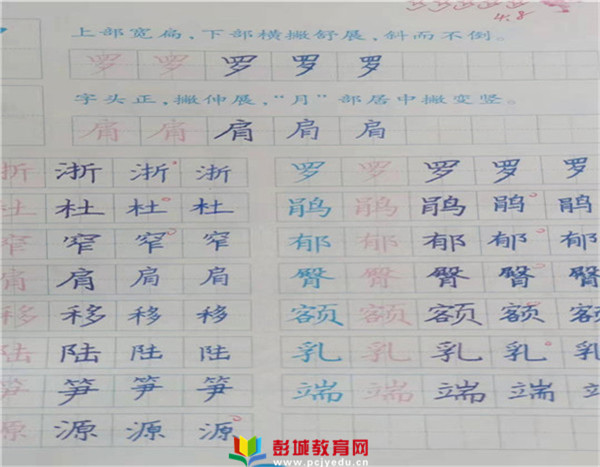 4.8
上部宽扁，下部横撇舒展，斜而不倒。
罗 罗 罗 罗 罗
字头正，撇伸展，“月”部居中撇变竖。
肩 肩 肩 肩 肩
浙 浙 浙 浙 罗 罗 罗 罗 罗
杜 杜 杜 杜 鹃 鹃 鹃 鹃 鹃
窄 窄 窄 窄 郁 郁 郁 郁 郁
肩 肩 肩 肩 臀 臀 臀 臀 臀
移 移 移 移 额 额 额 额 额
陆 陆 陆 陆 乳 乳 乳 乳 乳
笋 笋 笋 笋 端 端 端 端 端
源 源 源 源
彭城教育网
www.pcjyedu.cn